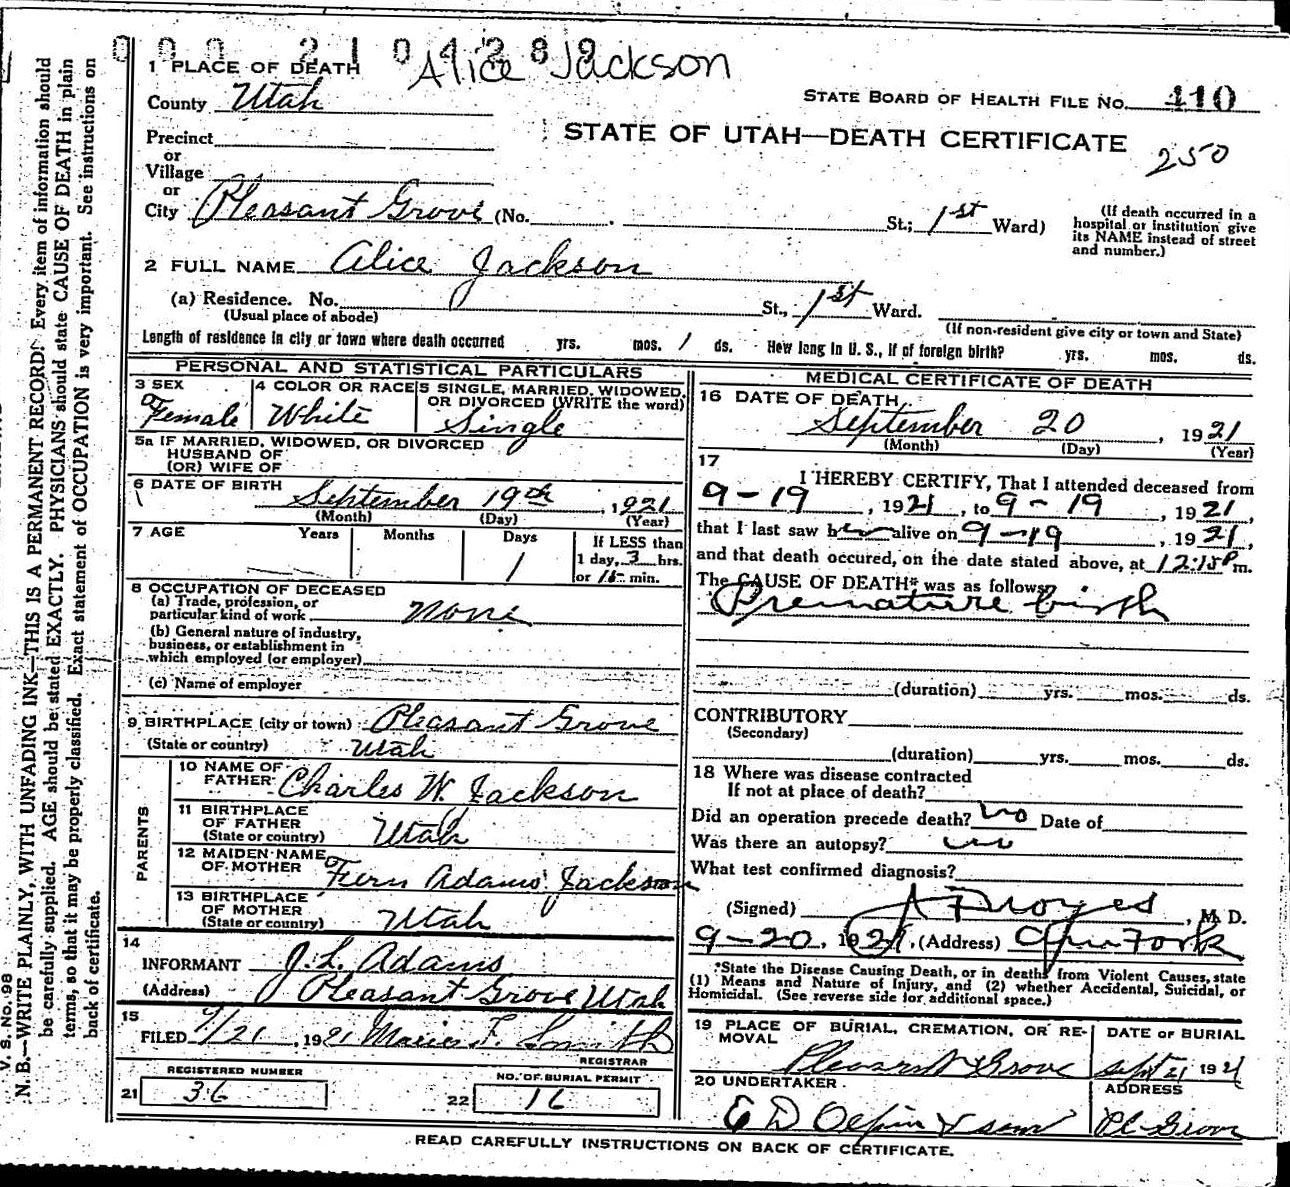 000 2104289
Alice Jackson
1 PLACE OF DEATH
County Utah
STATE BOARD OF HEALTH FILE NO. 410
STATE OF UTAH—DEATH CERTIFICATE
250
Precinct
or
Village
or
City Pleasant Grove (No. St.; 1st Ward)
(If death occurred in a hospital or institution give its NAME instead of street and number.)
2 FULL NAME Alice Jackson
(a) Residence. No. St., 1st Ward.
(Usual place of abode)
(If non-resident give city or town and State)
Length of residence in city or town where death occurred yrs. mos. 1 ds. How long in U. S., if of foreign birth? yrs. mos. ds.
PERSONAL AND STATISTICAL PARTICULARS
3 SEX
Female
4 COLOR OR RACE
White
5 SINGLE, MARRIED, WIDOWED, OR DIVORCED (WRITE the word)
Single
5a IF MARRIED, WIDOWED, OR DIVORCED
HUSBAND OF
(OR) WIFE OF
6 DATE OF BIRTH
September 19th, 1921
(Month) (Day) (Year)
7 AGE Years Months Days
1
If LESS than
1 day, 3 hrs.
or 15 min.
8 OCCUPATION OF DECEASED
(a) Trade, profession, or
particular kind of work None
(b) General nature of industry,
business, or establishment in
which employed (or employer)
(c) Name of employer
9 BIRTHPLACE (city or town) Pleasant Grove
(State or country) Utah
PARENTS
10 NAME OF FATHER Charles W. Jackson
11 BIRTHPLACE OF FATHER
(State or country) Utah
12 MAIDEN NAME OF MOTHER Fern Adams Jackson
13 BIRTHPLACE OF MOTHER
(State or country) Utah
14
INFORMANT J. L. Adams
(Address) Pleasant Grove Utah
15
FILED 9/21, 1921 F. Smith
REGISTRAR
REGISTERED NUMBER
21 36
NO. OF BURIAL PERMIT
22 16
MEDICAL CERTIFICATE OF DEATH
16 DATE OF DEATH
September 20, 1921
(Month) (Day) (Year)
17
I HEREBY CERTIFY, That I attended deceased from
9-19, 1921, to 9-19, 1921,
that I last saw her alive on 9-19, 1921,
and that death occured, on the date stated above, at 12:15 P m.
The CAUSE OF DEATH* was as follows:
Premature birth
(duration) yrs. mos. ds.
CONTRIBUTORY
(Secondary)
(duration) yrs. mos. ds.
18 Where was disease contracted
If not at place of death?
Did an operation precede death? no Date of
Was there an autopsy? no
What test confirmed diagnosis?
(Signed) Noyes, M. D.
9-20, 1921, (Address) Fork
*State the Disease Causing Death, or in deaths from Violent Causes, state
(1) Means and Nature of Injury, and (2) whether Accidental, Suicidal, or
Homicidal. (See reverse side for additional space.)
19 PLACE OF BURIAL, CREMATION, OR REMOVAL
Pleasant Grove
DATE OF BURIAL
Sept 21 1921
20 UNDERTAKER
E D Olpin & son
ADDRESS
Pl. Grove
READ CAREFULLY INSTRUCTIONS ON BACK OF CERTIFICATE.
V. S. No. 98
N. B.—WRITE PLAINLY, WITH UNFADING INK—THIS IS A PERMANENT RECORD. Every item of information should
be carefully supplied. AGE should be stated EXACTLY. PHYSICIANS should state CAUSE OF DEATH in plain
terms, so that it may be properly classified. Exact statement of OCCUPATION is very important. See instructions on
back of certificate.